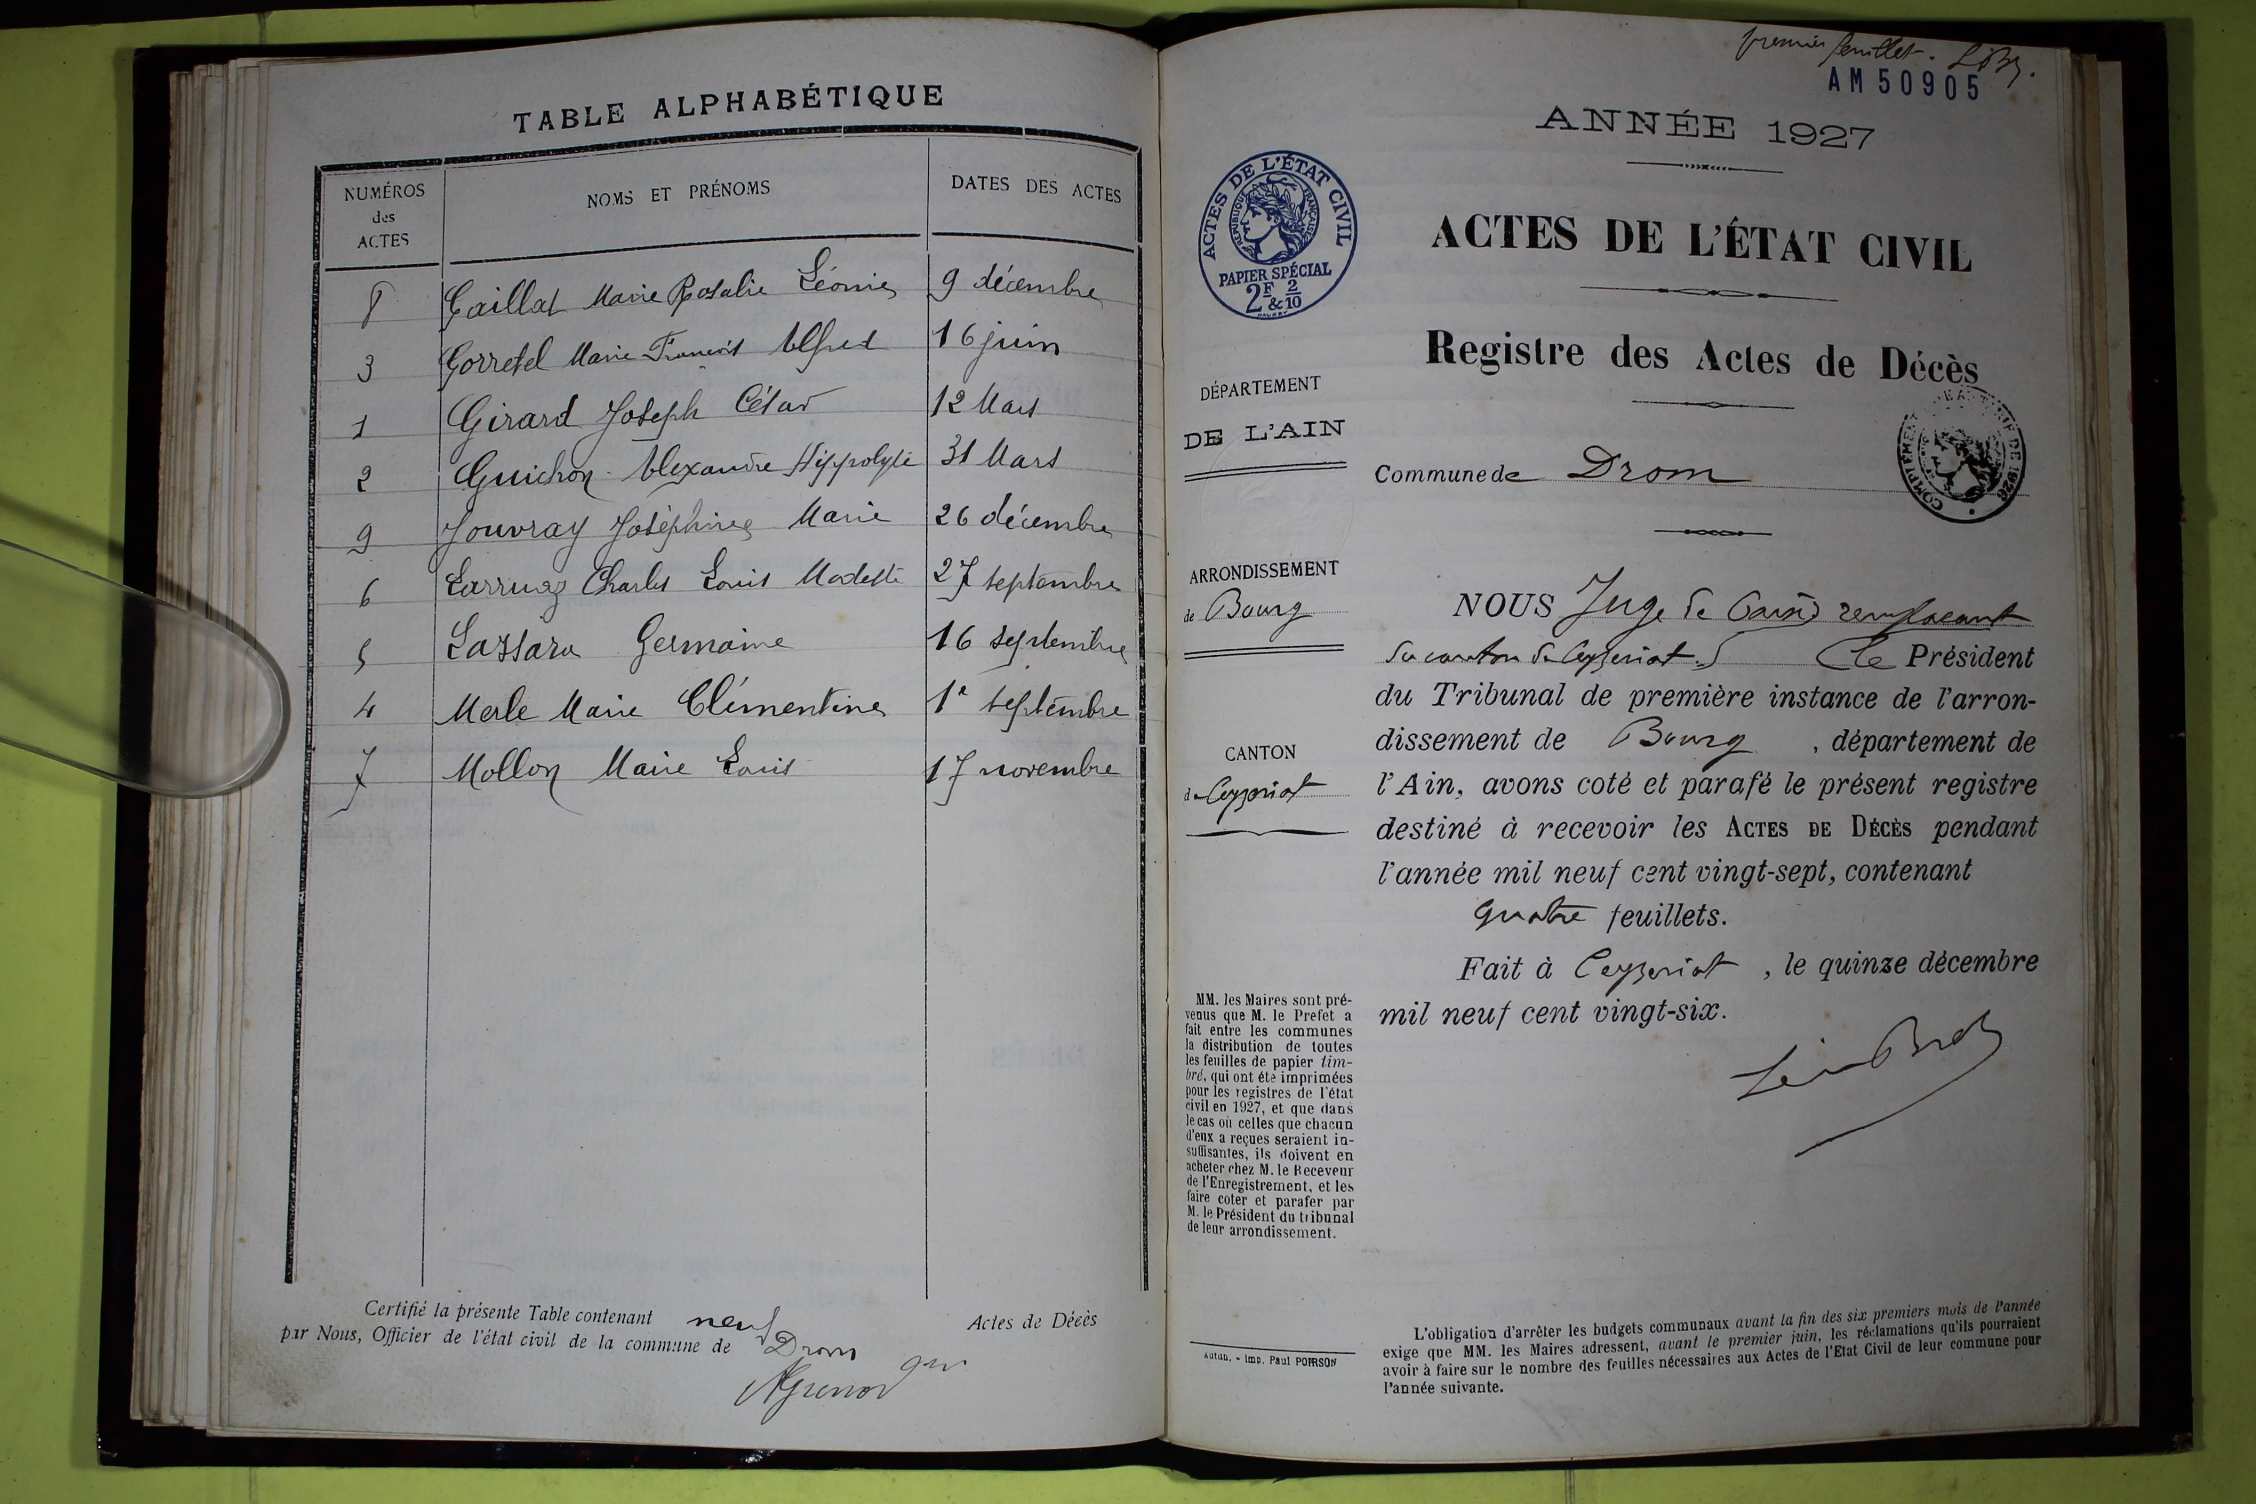 TABLE ALPHABÉTIQUE
NUMÉROS
des
ACTES
NOMS ET PRÉNOMS
DATES DES ACTES
8 Caillat Marie Rosalie Léonie 9 décembre
3 Gorretel Marie François Alfred 16 juin
1 Girard Joseph César 12 Mars
2 Guichon Alexandre Hippolyte 31 Mars
9 Jouvray Joséphine Marie 26 décembre
6 Larruaz Charles Louis Modeste 27 septembre
5 Lazzara Germaine 16 septembre
4 Merle Marie Clémentine 1e septembre
7 Mollon Marie Louis 17 novembre
Certifié la présente Table contenant neuf Actes de Décès
par Nous, Officier de l'état civil de la commune de Drom
premier feuillet.
AM 50905
ANNÉE 1927
ACTES DE L'ÉTAT CIVIL
RÉPUBLIQUE FRANÇAISE
PAPIER SPÉCIAL
2F & 2/10
ACTES DE L'ÉTAT CIVIL
Registre des Actes de Décès
COMPLÉMENT DE 1926
DÉPARTEMENT
DE L'AIN
Commune de Drom
ARRONDISSEMENT
de Bourg
CANTON
de Ceyzeriat
NOUS Juge de Paix remplacant
du canton de Ceyzeriat Le Président
du Tribunal de première instance de l'arron-
dissement de Bourg, département de
l'Ain, avons coté et parafé le présent registre
destiné à recevoir les ACTES DE DÉCÈS pendant
l'année mil neuf cent vingt-sept, contenant
quatre feuillets.
Fait à Ceyzeriat, le quinze décembre
mil neuf cent vingt-six.
MM. les Maires sont pré-
venus que M. le Prefet a
fait entre les communes
la distribution de toutes
les feuilles de papier tim-
bré, qui ont été imprimées
pour les registres de l'état
civil en 1927, et que dans
le cas où celles que chacun
d'eux a reçues seraient in-
suffisantes, ils doivent en
acheter chez M. le Receveur
de l'Enregistrement, et les
faire coter et parafer par
M. le Président du tribunal
de leur arrondissement.
Autun. - Imp. Paul POIRSON
L'obligation d'arrêter les budgets communaux avant la fin des six premiers mois de l'année
exige que MM. les Maires adressent, avant le premier juin, les réclamations qu'ils pourraient
avoir à faire sur le nombre des feuilles nécessaires aux Actes de l'Etat Civil de leur commune pour
l'année suivante.